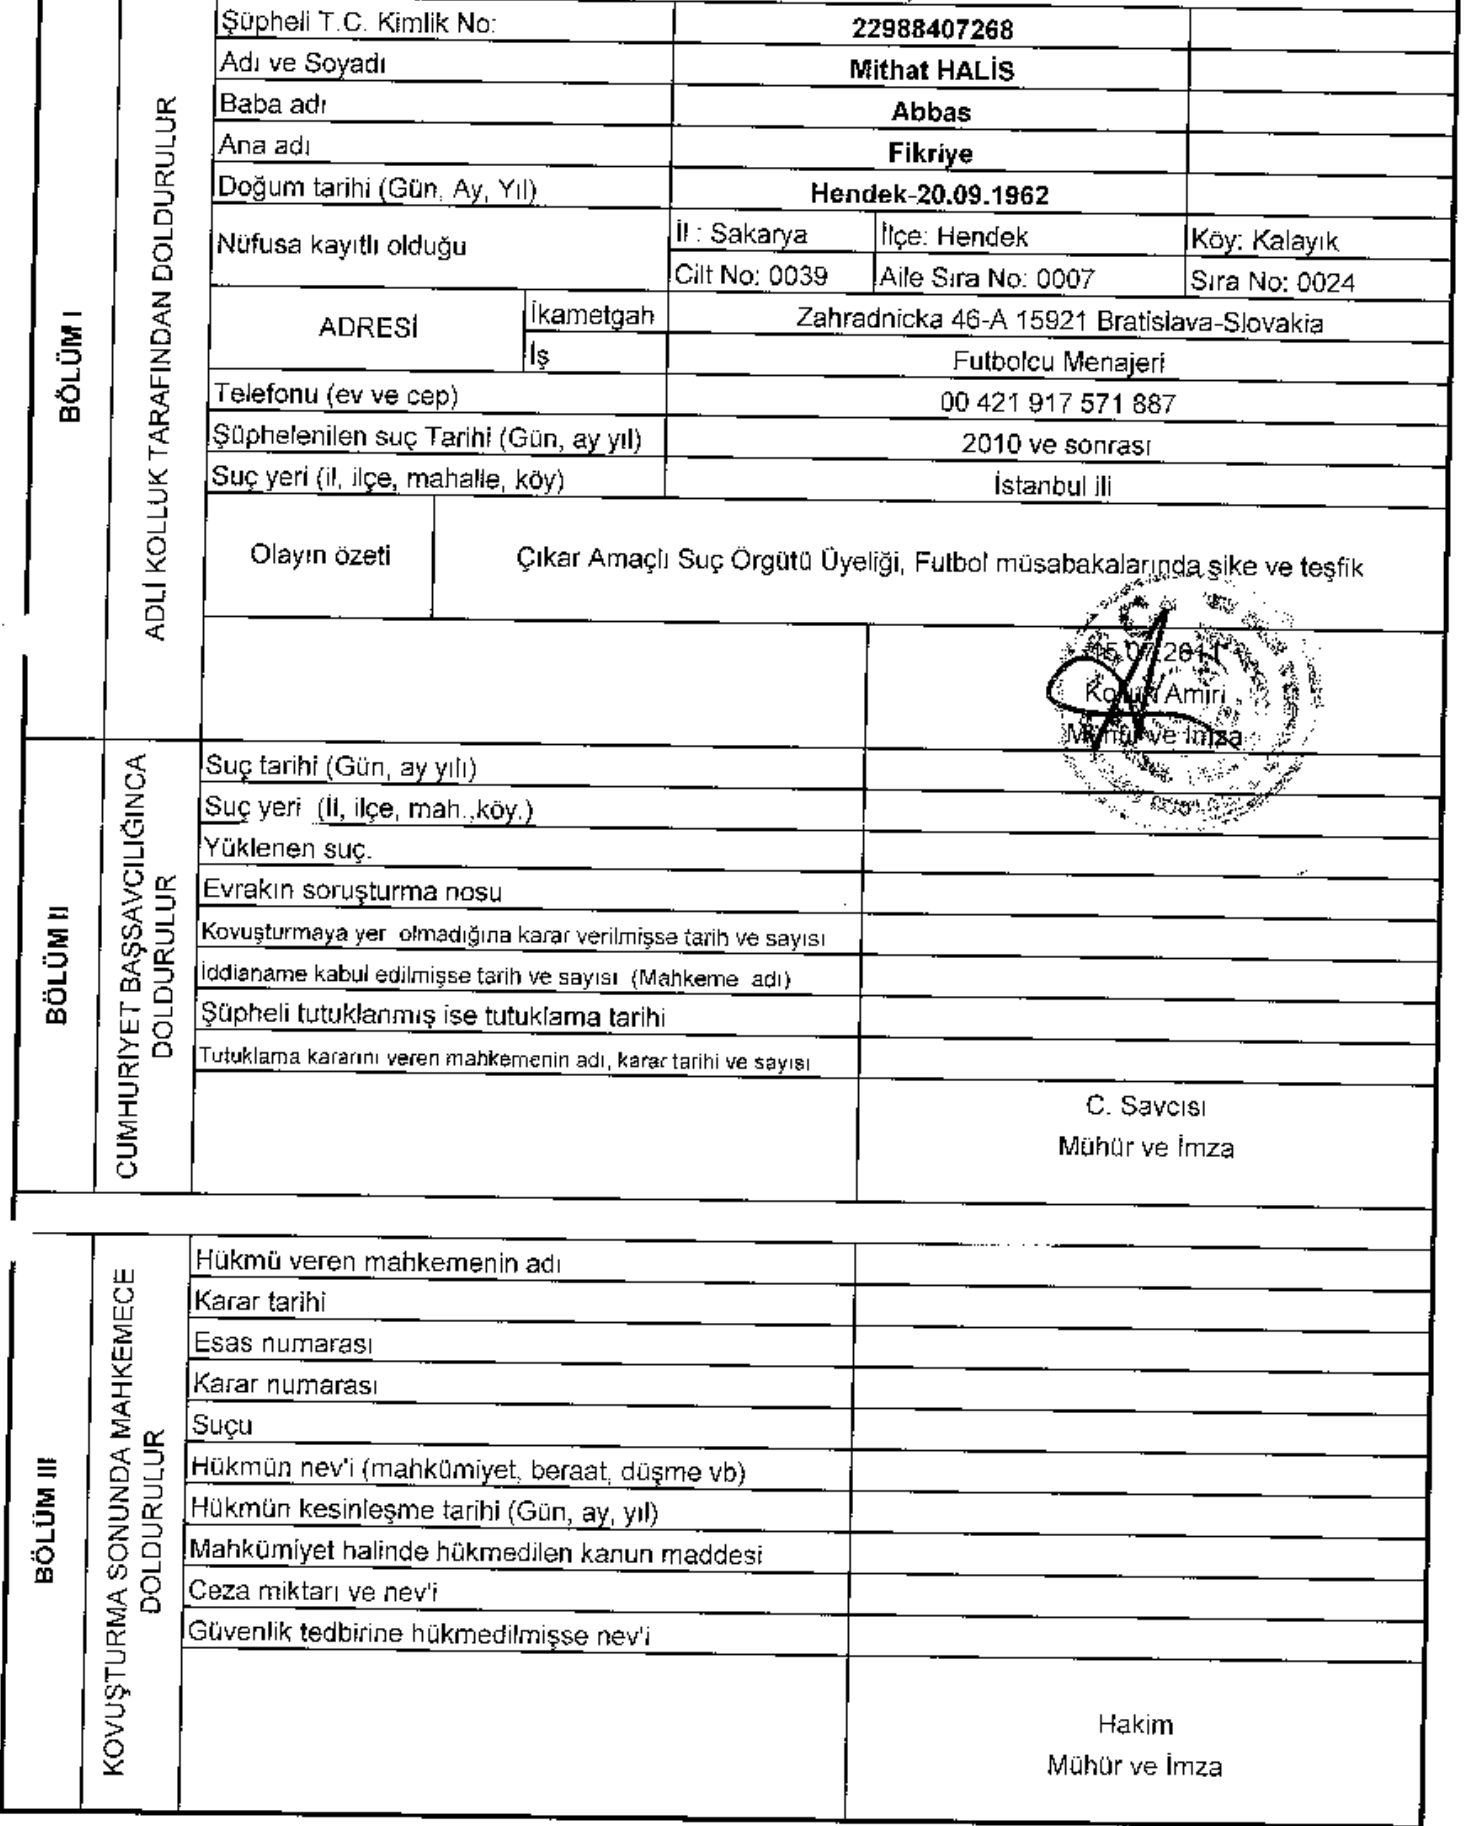 BÖLÜM I
ADLİ KOLLUK TARAFINDAN DOLDURULUR
Şüpheli T.C. Kimlik No: 22988407268
Adı ve Soyadı Mithat HALİS
Baba adı Abbas
Ana adı Fikriye
Doğum tarihi (Gün, Ay, Yıl) Hendek-20.09.1962
Nüfusa kayıtlı olduğu
İl : Sakarya İlçe: Hendek Köy: Kalayık
Cilt No: 0039 Aile Sıra No: 0007 Sıra No: 0024
ADRESİ
İkametgah Zahradnicka 46-A 15921 Bratislava-Slovakia
İş Futbolcu Menajeri
Telefonu (ev ve cep) 00 421 917 571 887
Şüphelenilen suç Tarihi (Gün, ay yıl) 2010 ve sonrası
Suç yeri (il, ilçe, mahalle, köy) İstanbul ili
Olayın özeti Çıkar Amaçlı Suç Örgütü Üyeliği, Futbol müsabakalarında şike ve teşfik
15.07.2011
Kolluk Amiri
Mühür ve İmza
BÖLÜM II
CUMHURİYET BAŞSAVCILIĞINCA
DOLDURULUR
Suç tarihi (Gün, ay yılı)
Suç yeri (İl, ilçe, mah.,köy.)
Yüklenen suç.
Evrakın soruşturma nosu
Kovuşturmaya yer olmadığına karar verilmişse tarih ve sayısı
İddianame kabul edilmişse tarih ve sayısı (Mahkeme adı)
Şüpheli tutuklanmış ise tutuklama tarihi
Tutuklama kararını veren mahkemenin adı, karar tarihi ve sayısı
C. Savcısı
Mühür ve İmza
BÖLÜM III
KOVUŞTURMA SONUNDA MAHKEMECE
DOLDURULUR
Hükmü veren mahkemenin adı
Karar tarihi
Esas numarası
Karar numarası
Suçu
Hükmün nev'i (mahkûmiyet, beraat, düşme vb)
Hükmün kesinleşme tarihi (Gün, ay, yıl)
Mahkûmiyet halinde hükmedilen kanun maddesi
Ceza miktarı ve nev'i
Güvenlik tedbirine hükmedilmişse nev'i
Hakim
Mühür ve İmza